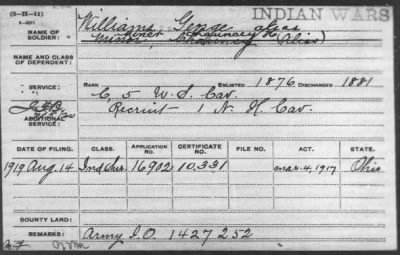 (3-H-11)
INDIAN WARS
NAME OF SOLDIER:
Williams, George alias
Minor, Chauncey H. (alias)
NAME AND CLASS OF DEPENDENT:
SERVICE:
RANK ENLISTED 1876 DISCHARGED 1881
C, 5 U.S. Cav.
ADDITIONAL SERVICE:
Recruit 1 N. H. Cav.
DATE OF FILING. CLASS. APPLICATION NO. CERTIFICATE NO. FILE NO. ACT. STATE.
1919 Aug. 14 Ind Sur. 16902 10.331 mar. 4, 1917 Ohio
BOUNTY LAND:
REMARKS: Army I.O. 1427252